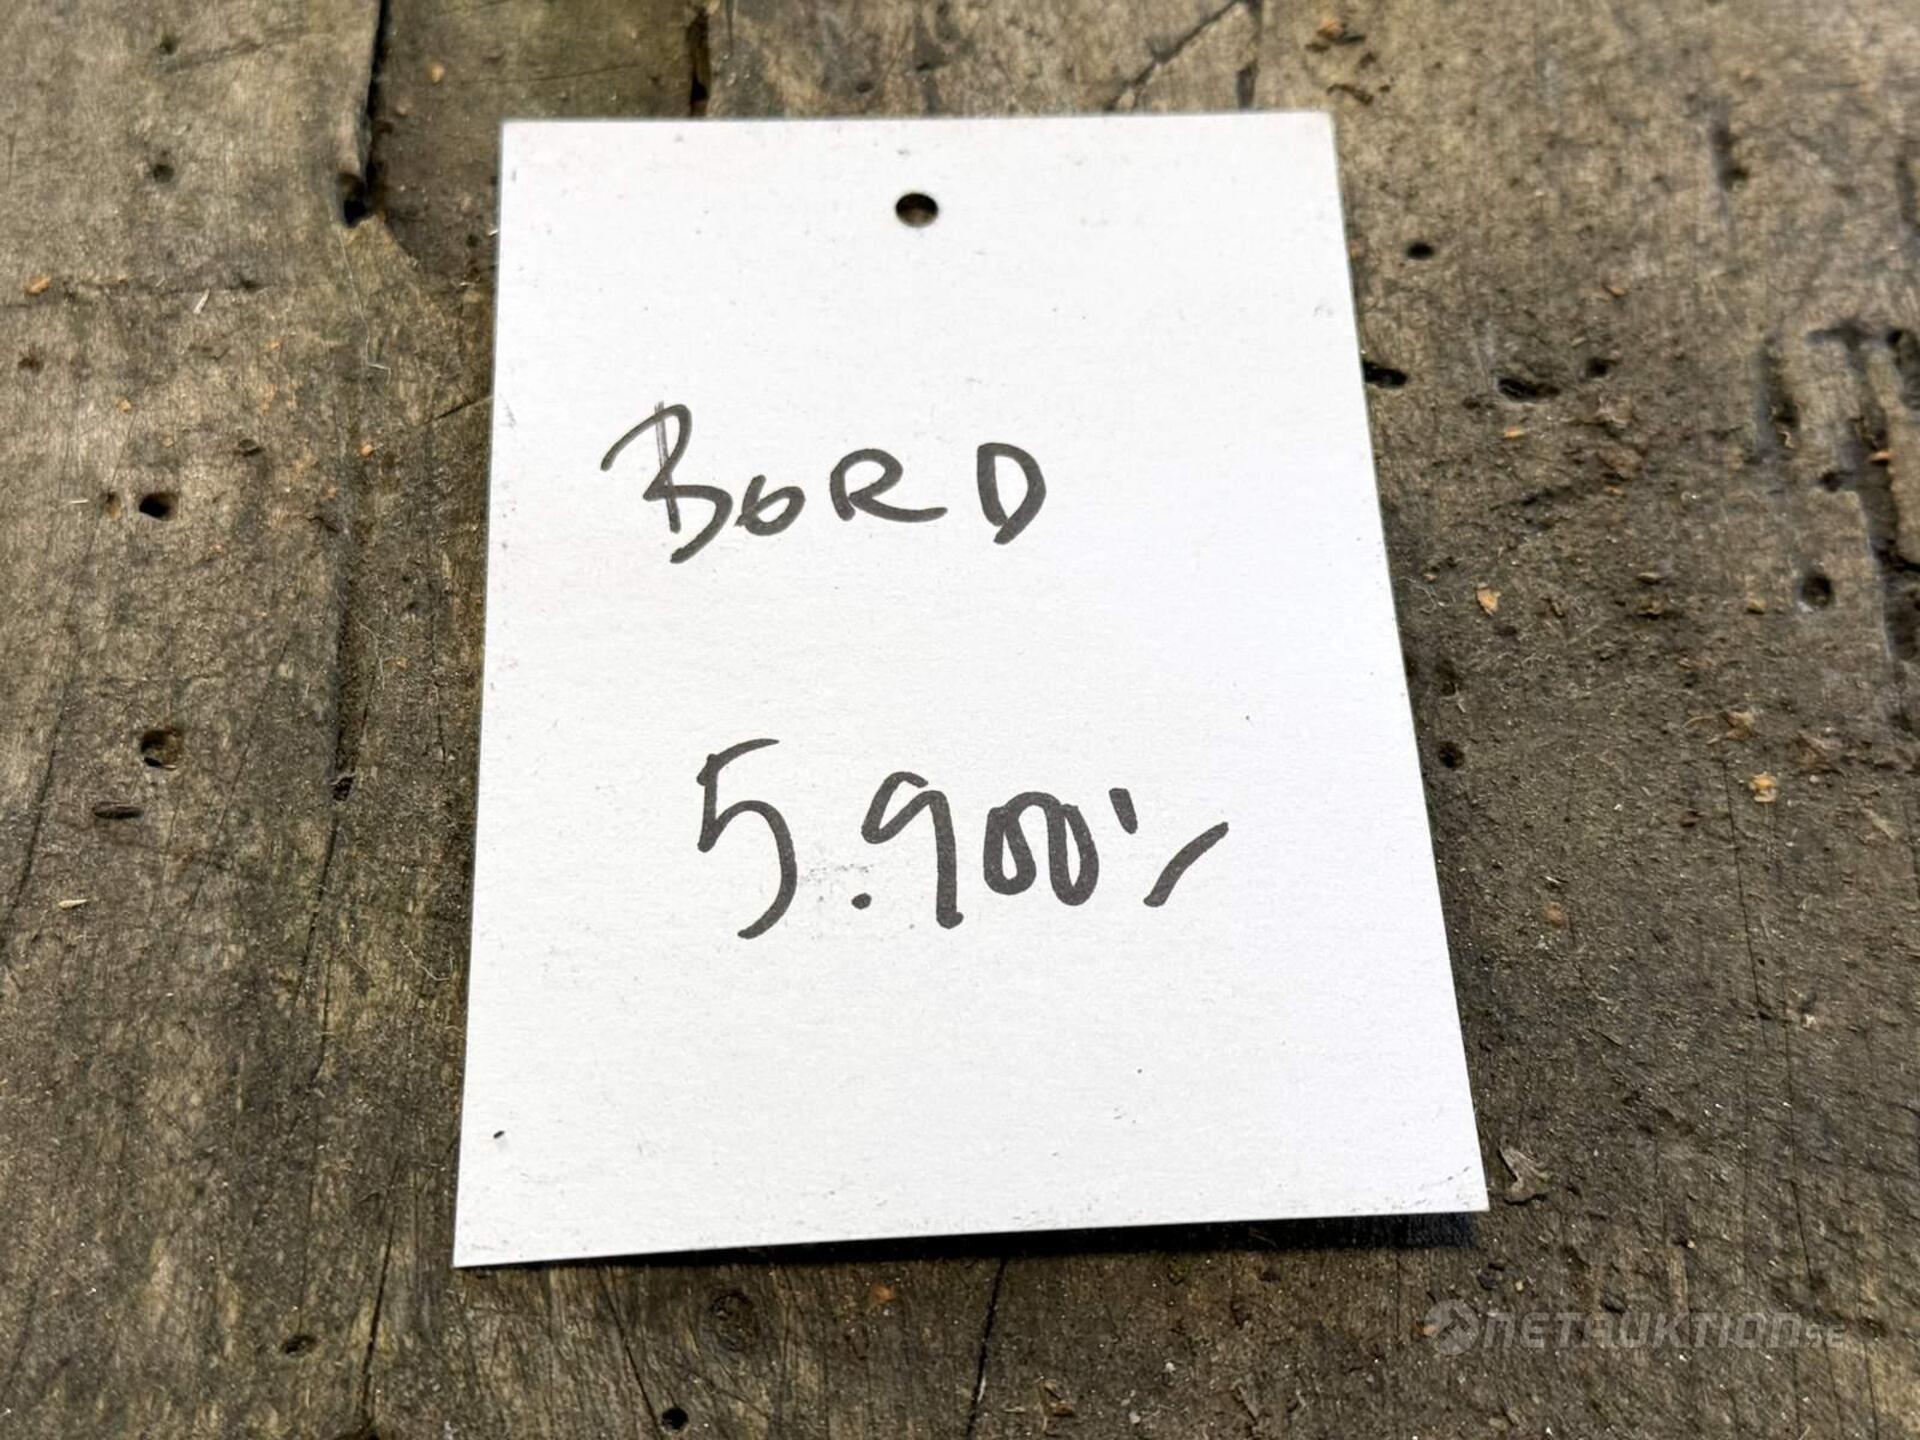 BORD
5.900:-
NETAUKTION.SE